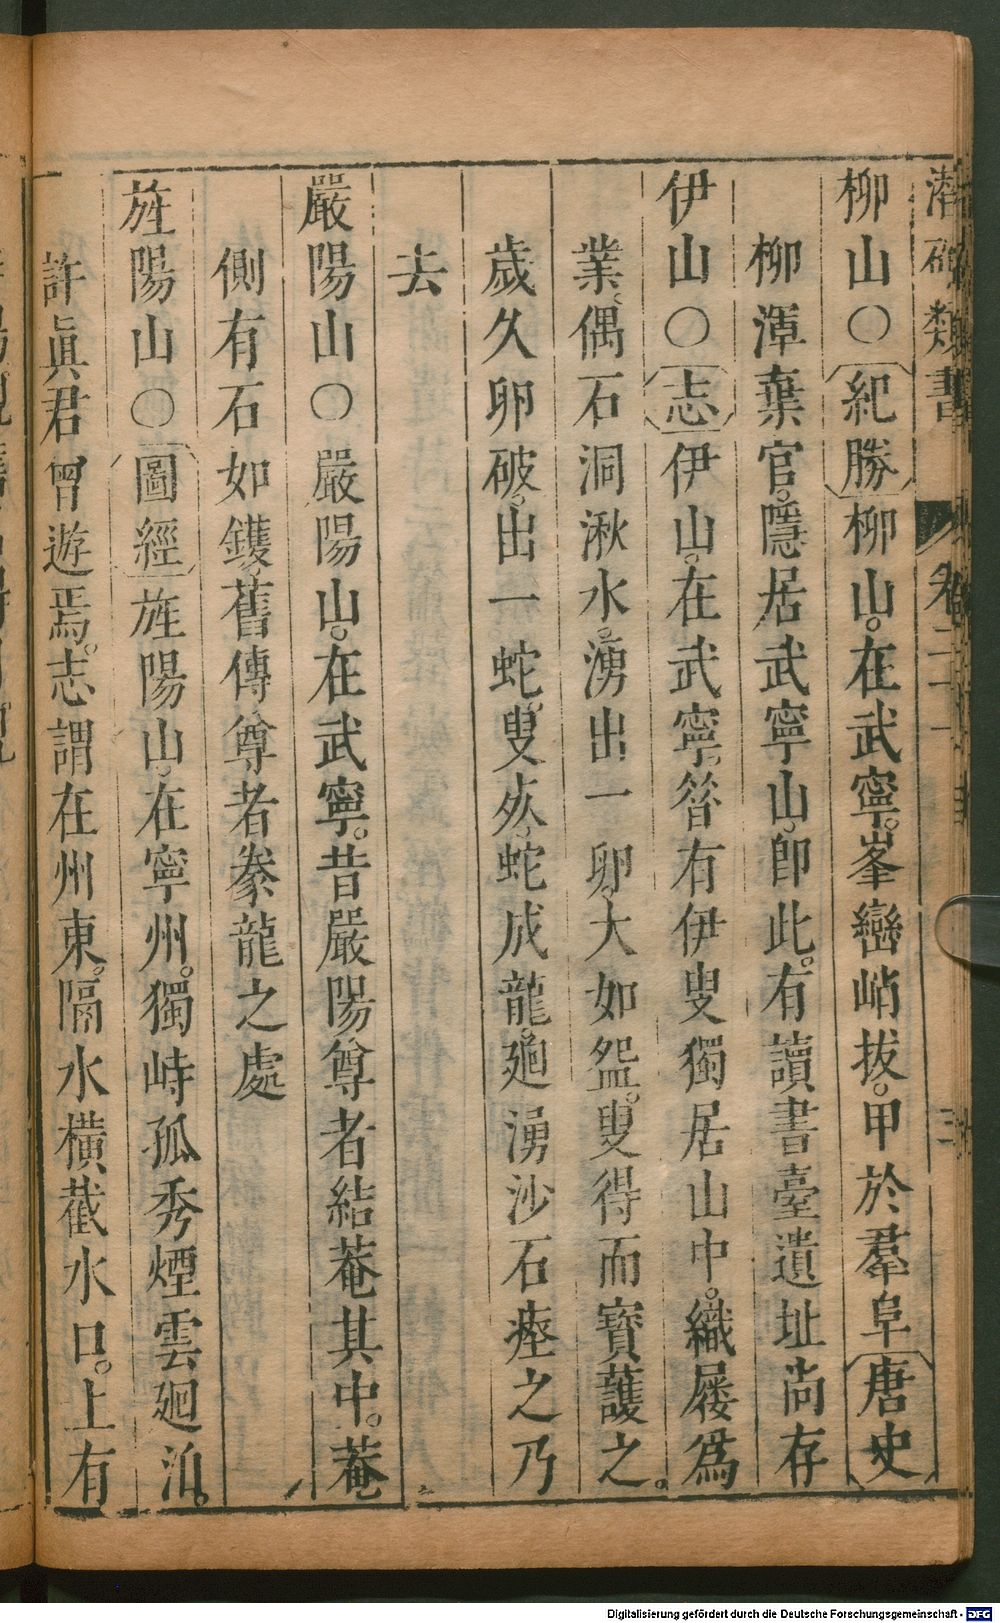 潛確類書 卷二十 三
柳山○紀勝柳山。在武寧。峯巒峭拔。甲於羣阜唐史
柳渾棄官。隱居武寧山。卽此。有讀書臺遺址尚存
伊山○志伊山。在武寧。昝有伊叟獨居山中。織屨爲
業。偶石洞湫水。湧出一卵。大如盌。叟得而寳護之。
歲久卵破。出一蛇。叟歿。蛇成龍。廻湧沙石瘞之乃
去
嚴陽山○嚴陽山。在武寧。昔嚴陽尊者結菴其中。菴
側有石如鑊。舊傳尊者豢龍之處
旌陽山○圖經旌陽山。在寧州。獨峙孤秀煙雲廻泊。
許眞君曾遊焉。志謂在州東。隔水横截水口。上有
Digitalisierung gefördert durch die Deutsche Forschungsgemeinschaft - DFG